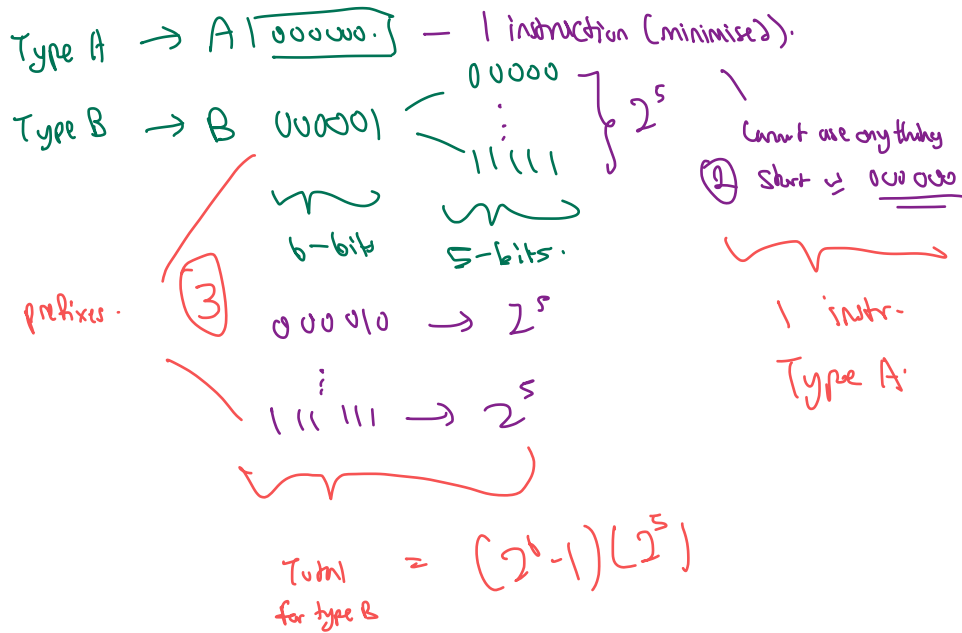 Type A → A | 000000. — 1 instruction (minimised).
Type B → B 000001
00000
⋮
11111
2^5
Cannot use anything
② start w 000000
6-bit
5-bits.
prefixes.
③
000010 → 2^5
⋮
111111 → 2^5
1 instr.
Type A.
Total for type B = (2^6-1)(2^5)